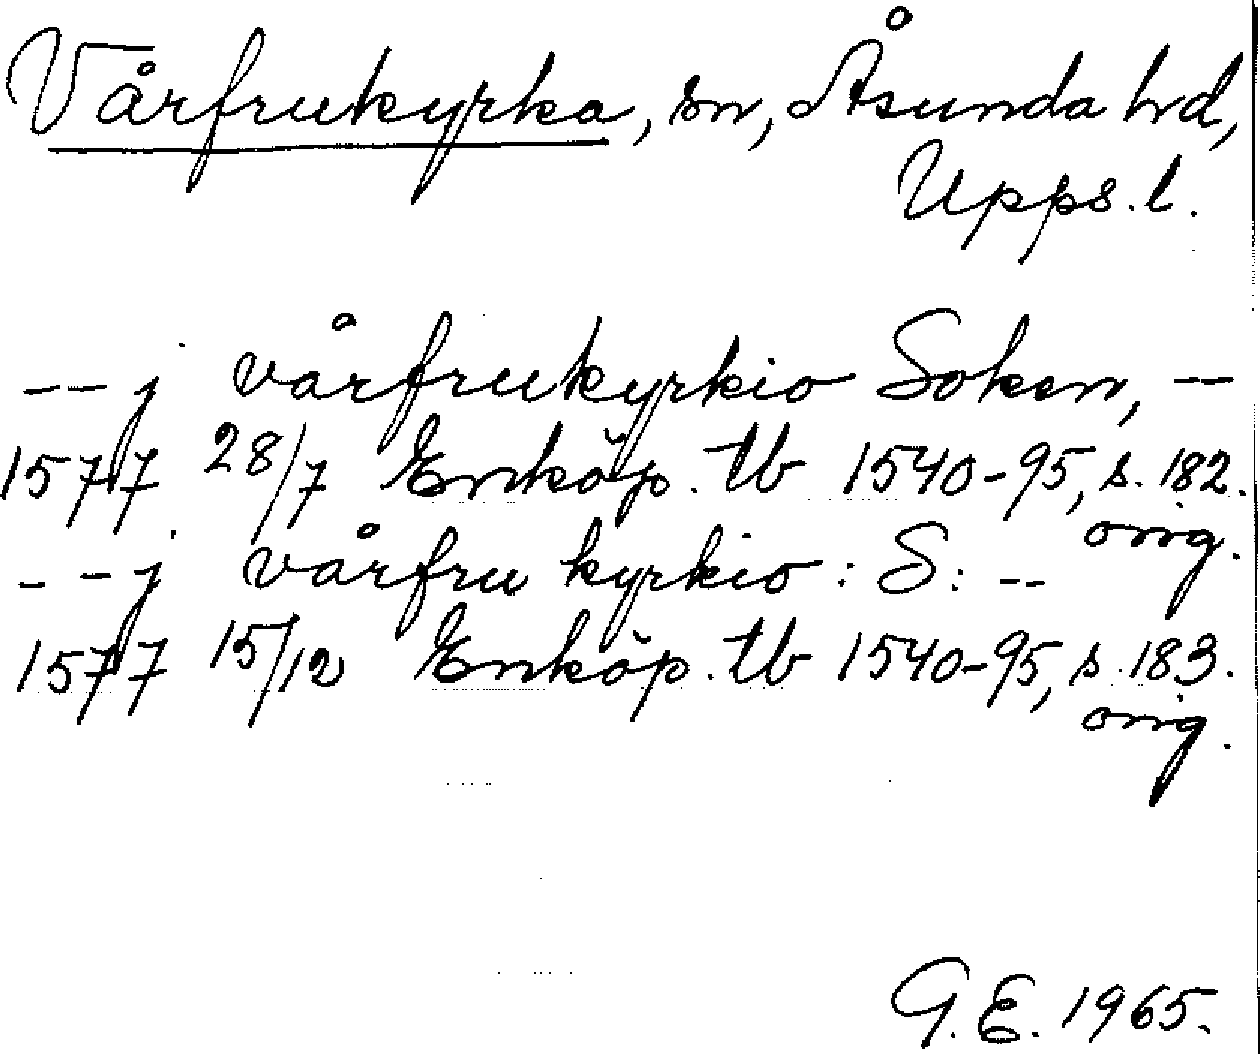 Vårfrukyrka, sn, Åsunda hd,
Upps. l.
-- j vårfrukyrkio Soken, --
1577 28/7 Enköp. tb 1540-95, s. 182.
orig.
-- j vårfru kyrkio : S : --
1577 15/12 Enköp. tb 1540-95, s. 183.
orig.
G.E. 1965.